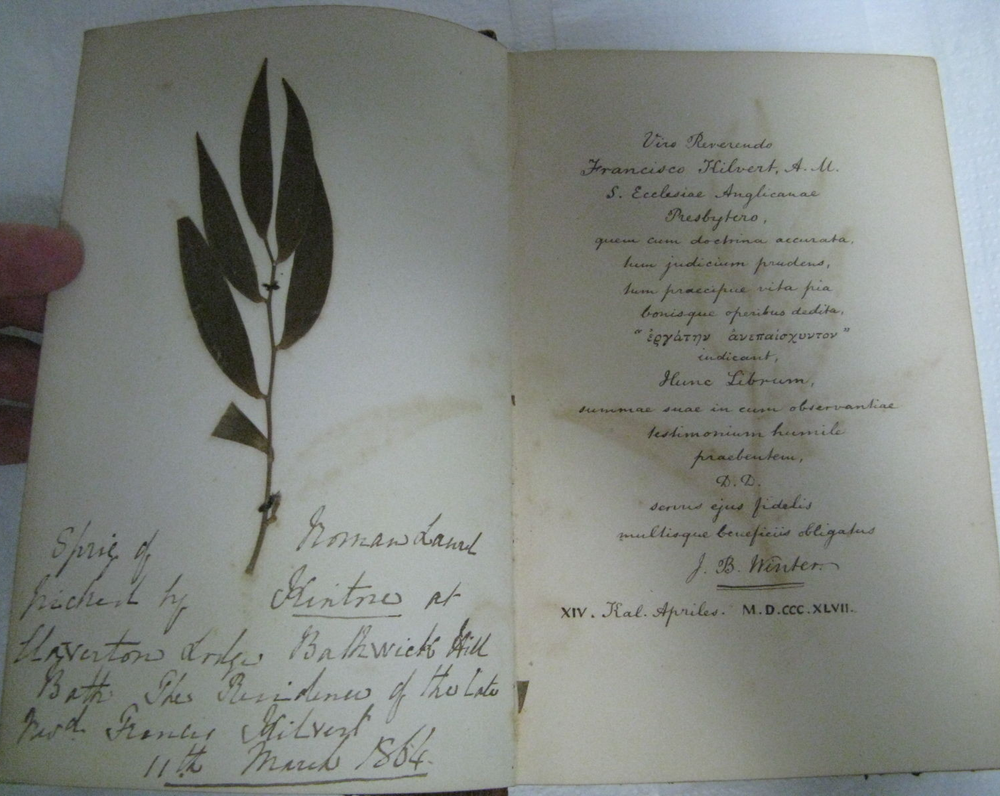 Sprig of Roman Laurel
picked by Kintne at
Claverton Lodge Bathwick Hill
Bath The Residence of the late
Revd. Francis Kilvert
11th March 1864.
Viro Reverendo
Francisco Kilvert, A. M.
S. Ecclesiae Anglicanae
Presbytero,
quem cum doctrina accurata,
tum judicium prudens,
tum praecipue vita pia
bonisque operibus dedita,
"ἐργάτην ἀνεπαίσχυντον"
indicant,
Hunc Librum,
summae suae in eum observantiae
testimonium humile
praebentem,
D. D.
servus ejus fidelis
multisque beneficiis obligatus
J. B. Winter.
XIV. Kal. Apriles. M.D.CCC.XLVII.